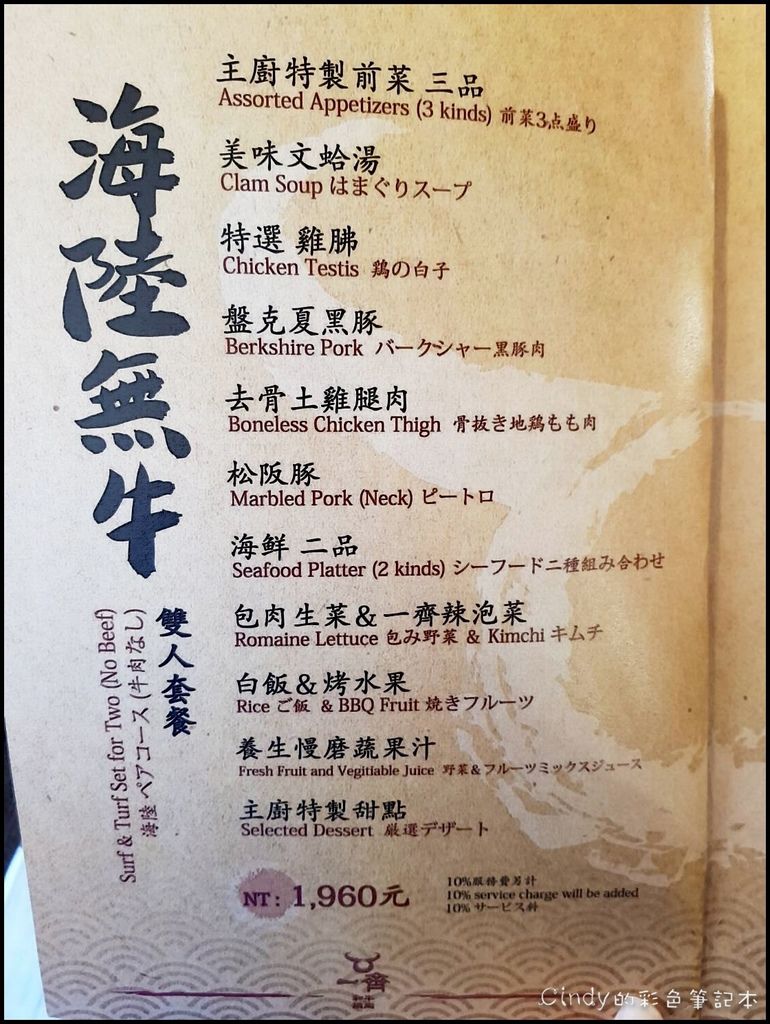 海陸無牛
雙人套餐
Surf & Turf Set for Two (No Beef)
海陸 ペアコース (牛肉なし)
主廚特製前菜 三品
Assorted Appetizers (3 kinds) 前菜3点盛り
美味文蛤湯
Clam Soup はまぐりスープ
特選 雞胇
Chicken Testis 鶏の白子
盤克夏黑豚
Berkshire Pork バークシャー黒豚肉
去骨土雞腿肉
Boneless Chicken Thigh 骨抜き地鶏もも肉
松阪豚
Marbled Pork (Neck) ピートロ
海鮮 二品
Seafood Platter (2 kinds) シーフード二種組み合わせ
包肉生菜&一齊辣泡菜
Romaine Lettuce 包み野菜 & Kimchi キムチ
白飯&烤水果
Rice ご飯 & BBQ Fruit 焼きフルーツ
養生慢磨蔬果汁
Fresh Fruit and Vegitiable Juice 野菜&フルーツミックスジュース
主廚特製甜點
Selected Dessert 厳選デザート
NT: 1,960元
10%服務費另計
10% service charge will be added
10% サービス料
一齊
Cindy的彩色筆記本